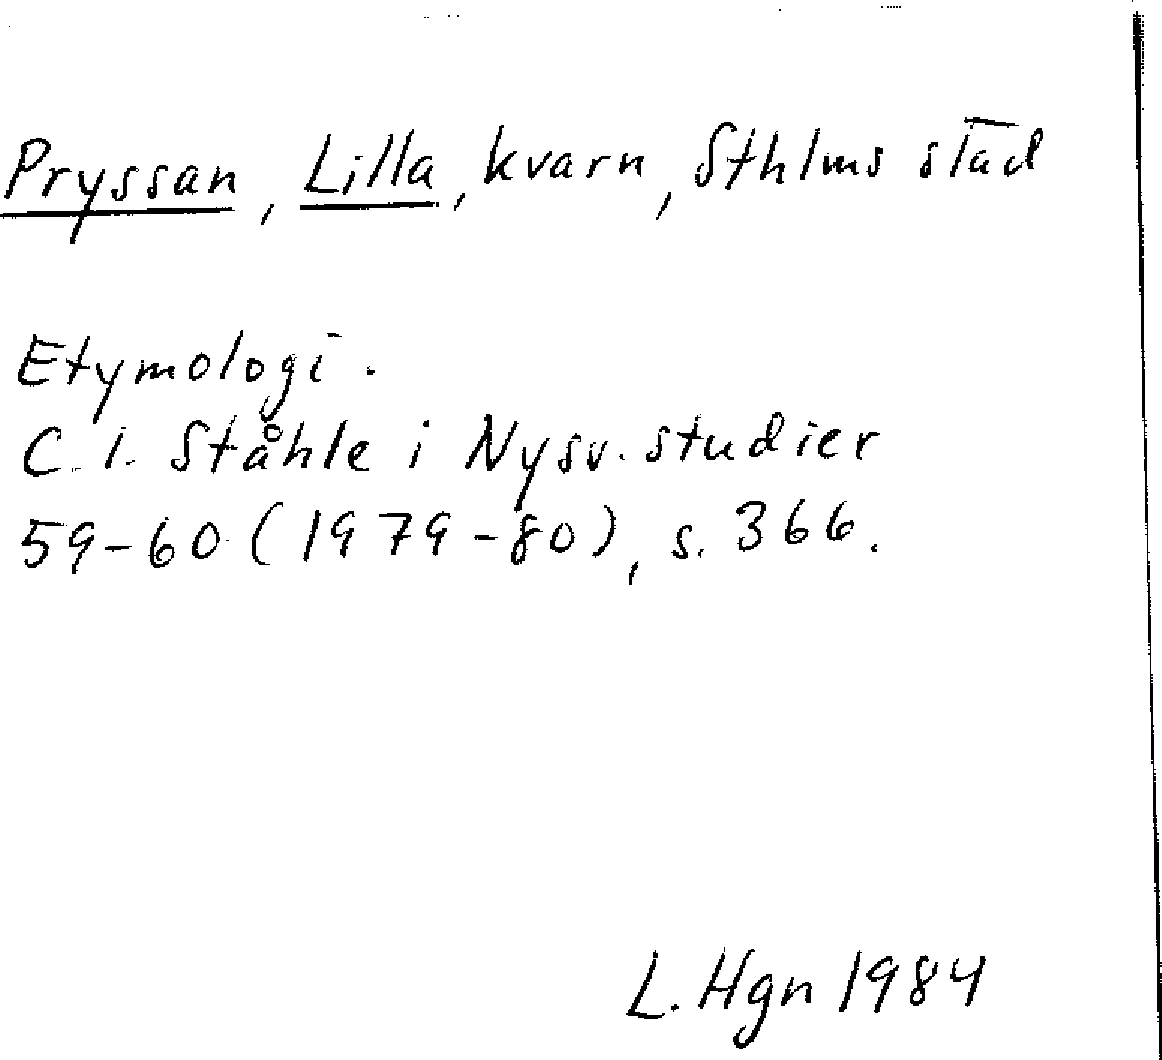 Pryssan, Lilla, kvarn, Sthlms stad
Etymologi.
C. I. Ståhle i Nysv. studier
59-60 (1979-80), s. 366.
L. Hgn 1984